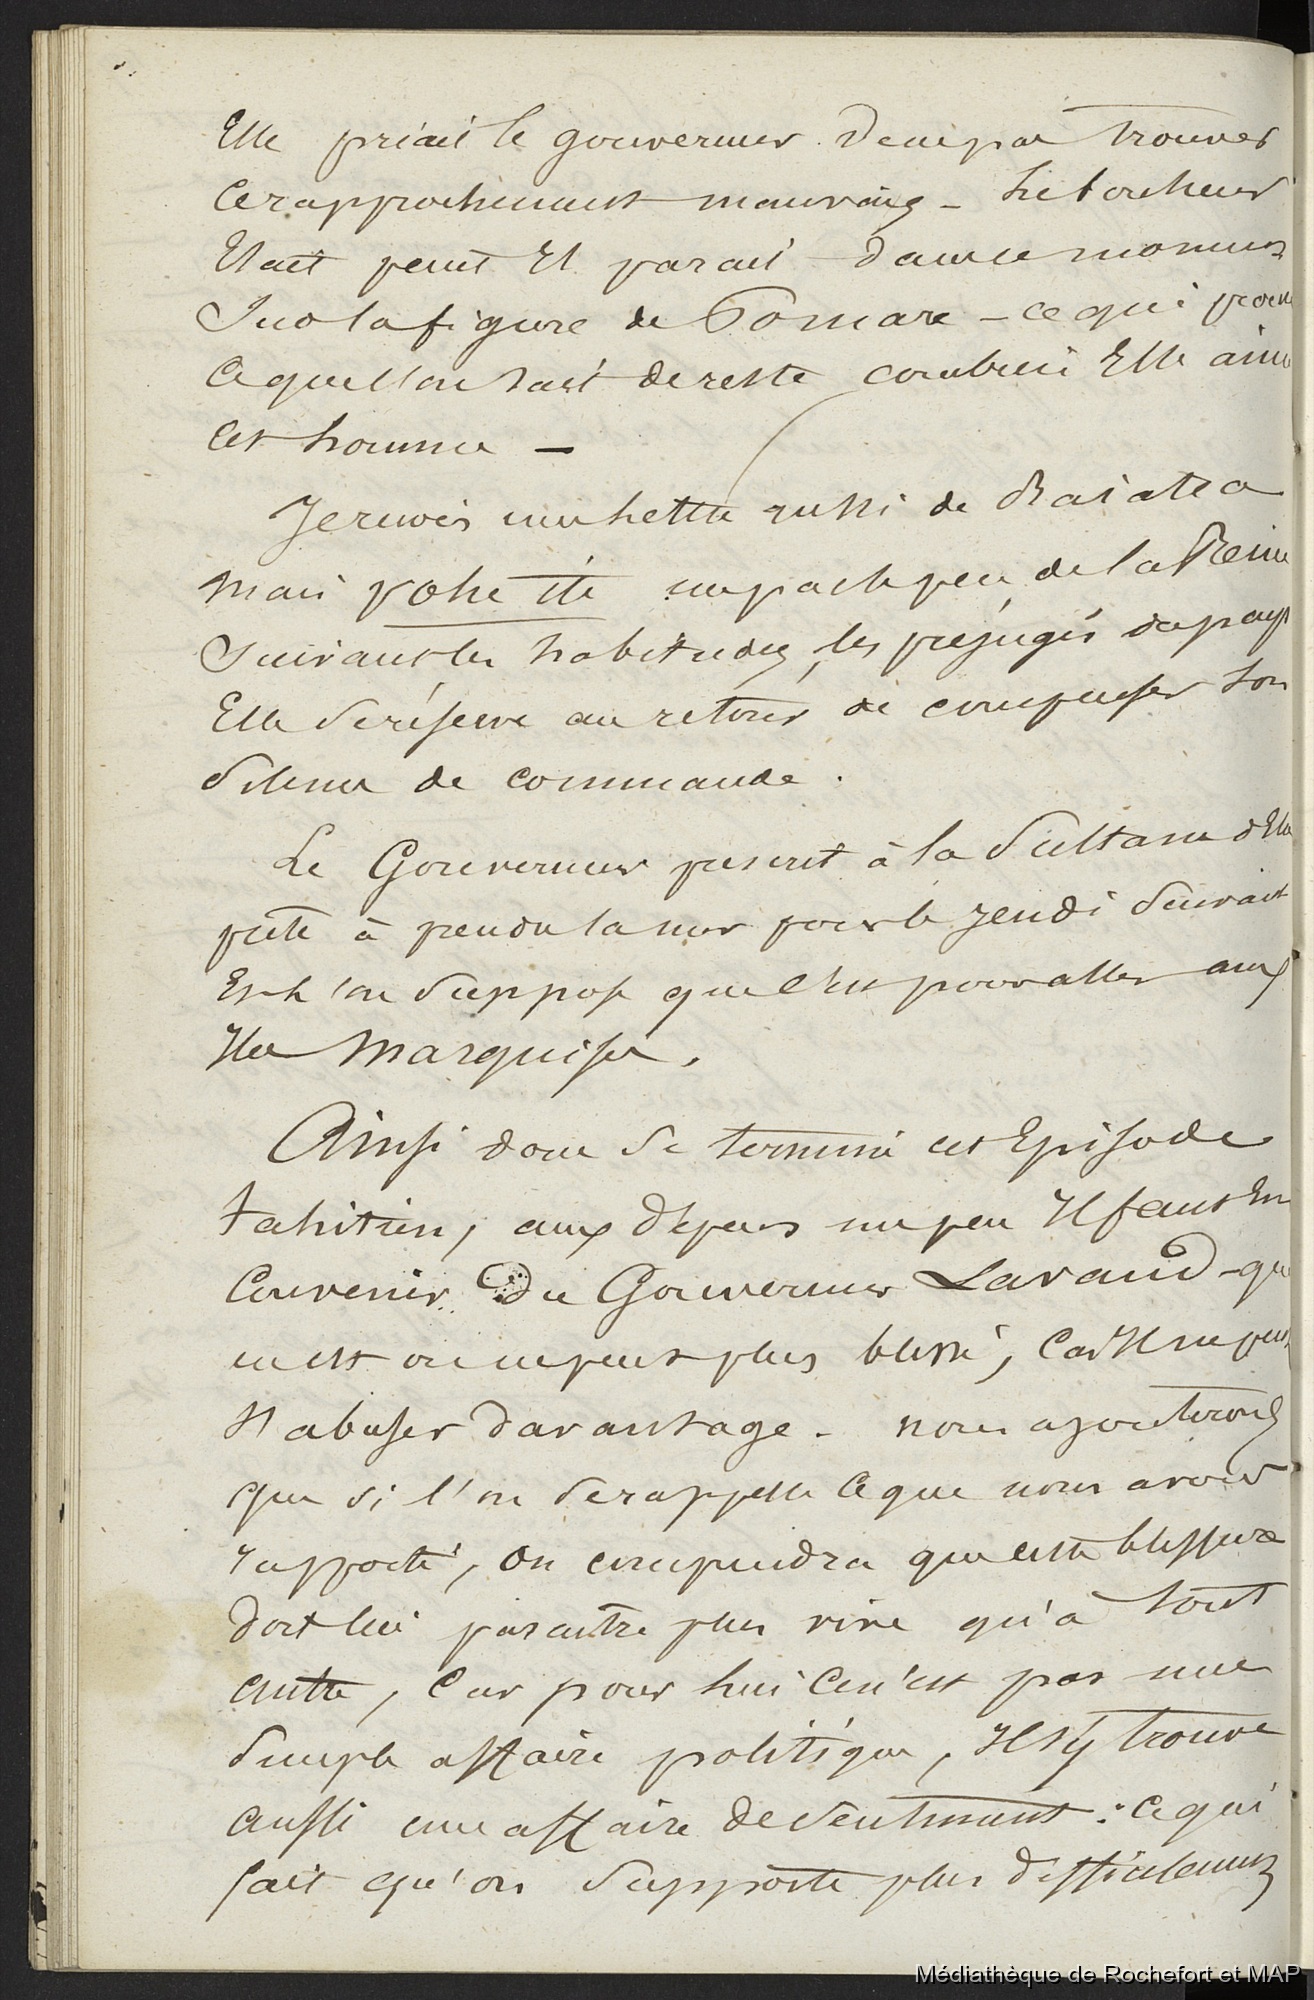 Elle priait le gouverneur de ne pas trouver
ce rapprochement mauvais - le bonheur
Etait peint Et parait dans ce moment
sur la figure de Pomare - ce qui prouve
ce que l'on sait de reste combien Elle aime
cet homme -
Je reçois une lettre aussi de Raiatea
mais me parle peu de la Reine
suivant les habitudes, les préjugés du pays
Elle se réserve au retour de compenser son
silence de commande.
Le Gouverneur prescrit à la Sultane d'Etre
prête à prendre la mer pour le jeudi suivant
Et l'on suppose que c'est pour aller aux
Iles Marquises.
Ainsi donc se termine cet Episode
tahitien, aux dépens un peu Il faut En
convenir du Gouverneur Lavaud - qui
en est on ne peut plus blessé, car Il ne peut
s'abuser davantage - nous ajouterons
que si l'on se rappelle ce que nous avons
rapporté, on comprendra que cette blessure
doit lui paraitre plus vive qu'à tout
autre, car pour lui ce n'est pas une
simple affaire politique, Il s'y trouve
aussi une affaire de sentiment : ce qui
fait qu'on supporte plus difficilement
Médiathèque de Rochefort et MAP